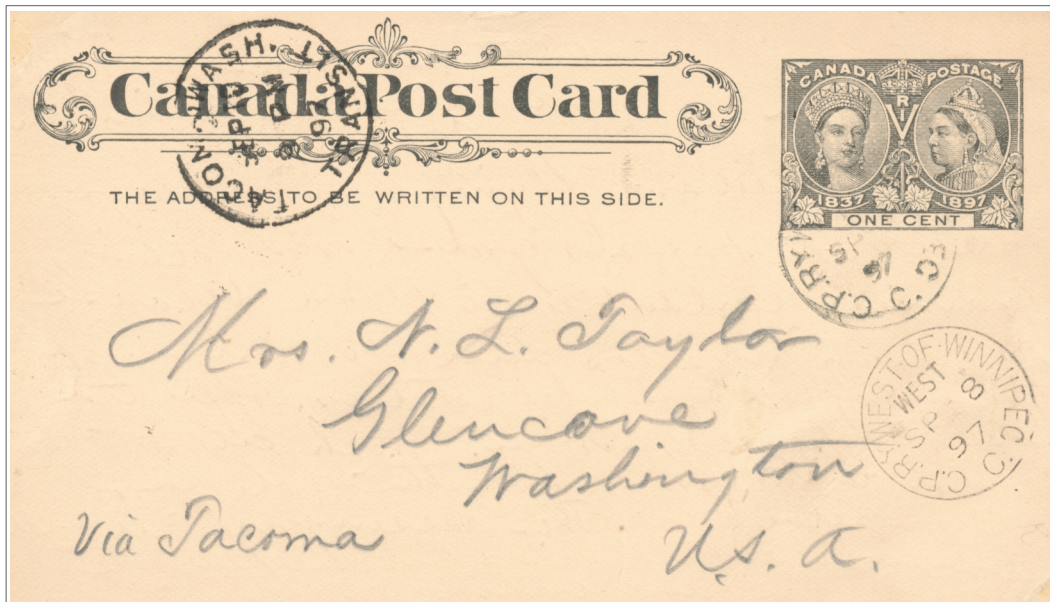 Canada Post Card
THE ADDRESS TO BE WRITTEN ON THIS SIDE.
CANADA POSTAGE
V R I
1837 1897
ONE CENT
TACOMA WASH.
TRANSIT
SEP
PM
97
C.P.RY.
SP
97
C.P.RY. WEST·OF·WINNIPEG·
WEST
8
SP
97
Mrs. N. L. Taylor
Glencove
Washington
U.S.A.
Via Tacoma